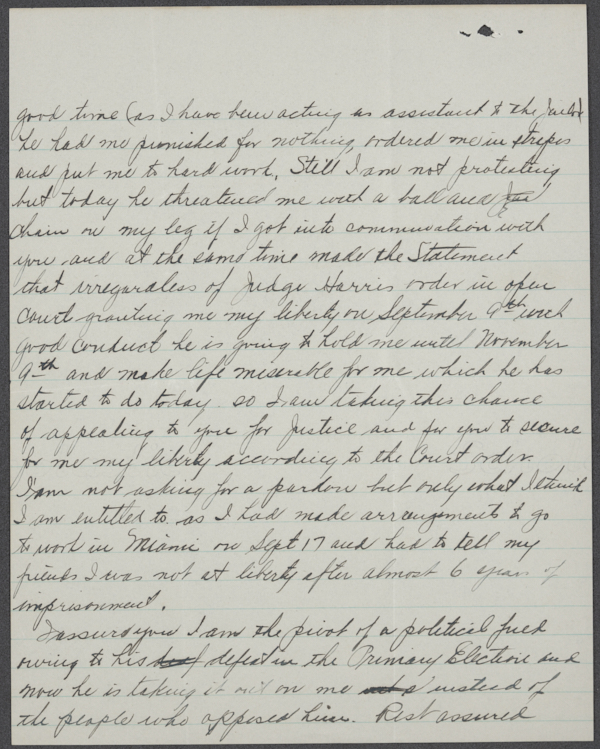 good time (as I have been acting as assistant to the Jailor)
he had me punished for nothing, ordered me in stripes
and put me to hard work, Still I am not protesting
but today he threatened me with a ball and
chain on my leg if I got into communication with
you and at the same time made the Statement
that irregardless of Judge Harris order in open
Court granting me my liberty on September 9th with
good conduct he is going to hold me until November
9th and make life miserable for me which he has
started to do today. so I am taking this chance
of appealing to you for Justice and for you to secure
for me my liberty according to the Court order.
I am not asking for a pardon but only what I think
I am entitled to as I had made arrangements to go
to work in Miami on Sept 17 and had to tell my
friends I was not at liberty after almost 6 years of
imprisonment.
I assure you I am the pivot of a political feud
owing to his defeat in the Primary Election and
now he is taking it out on me instead of
the people who opposed him. Rest assured